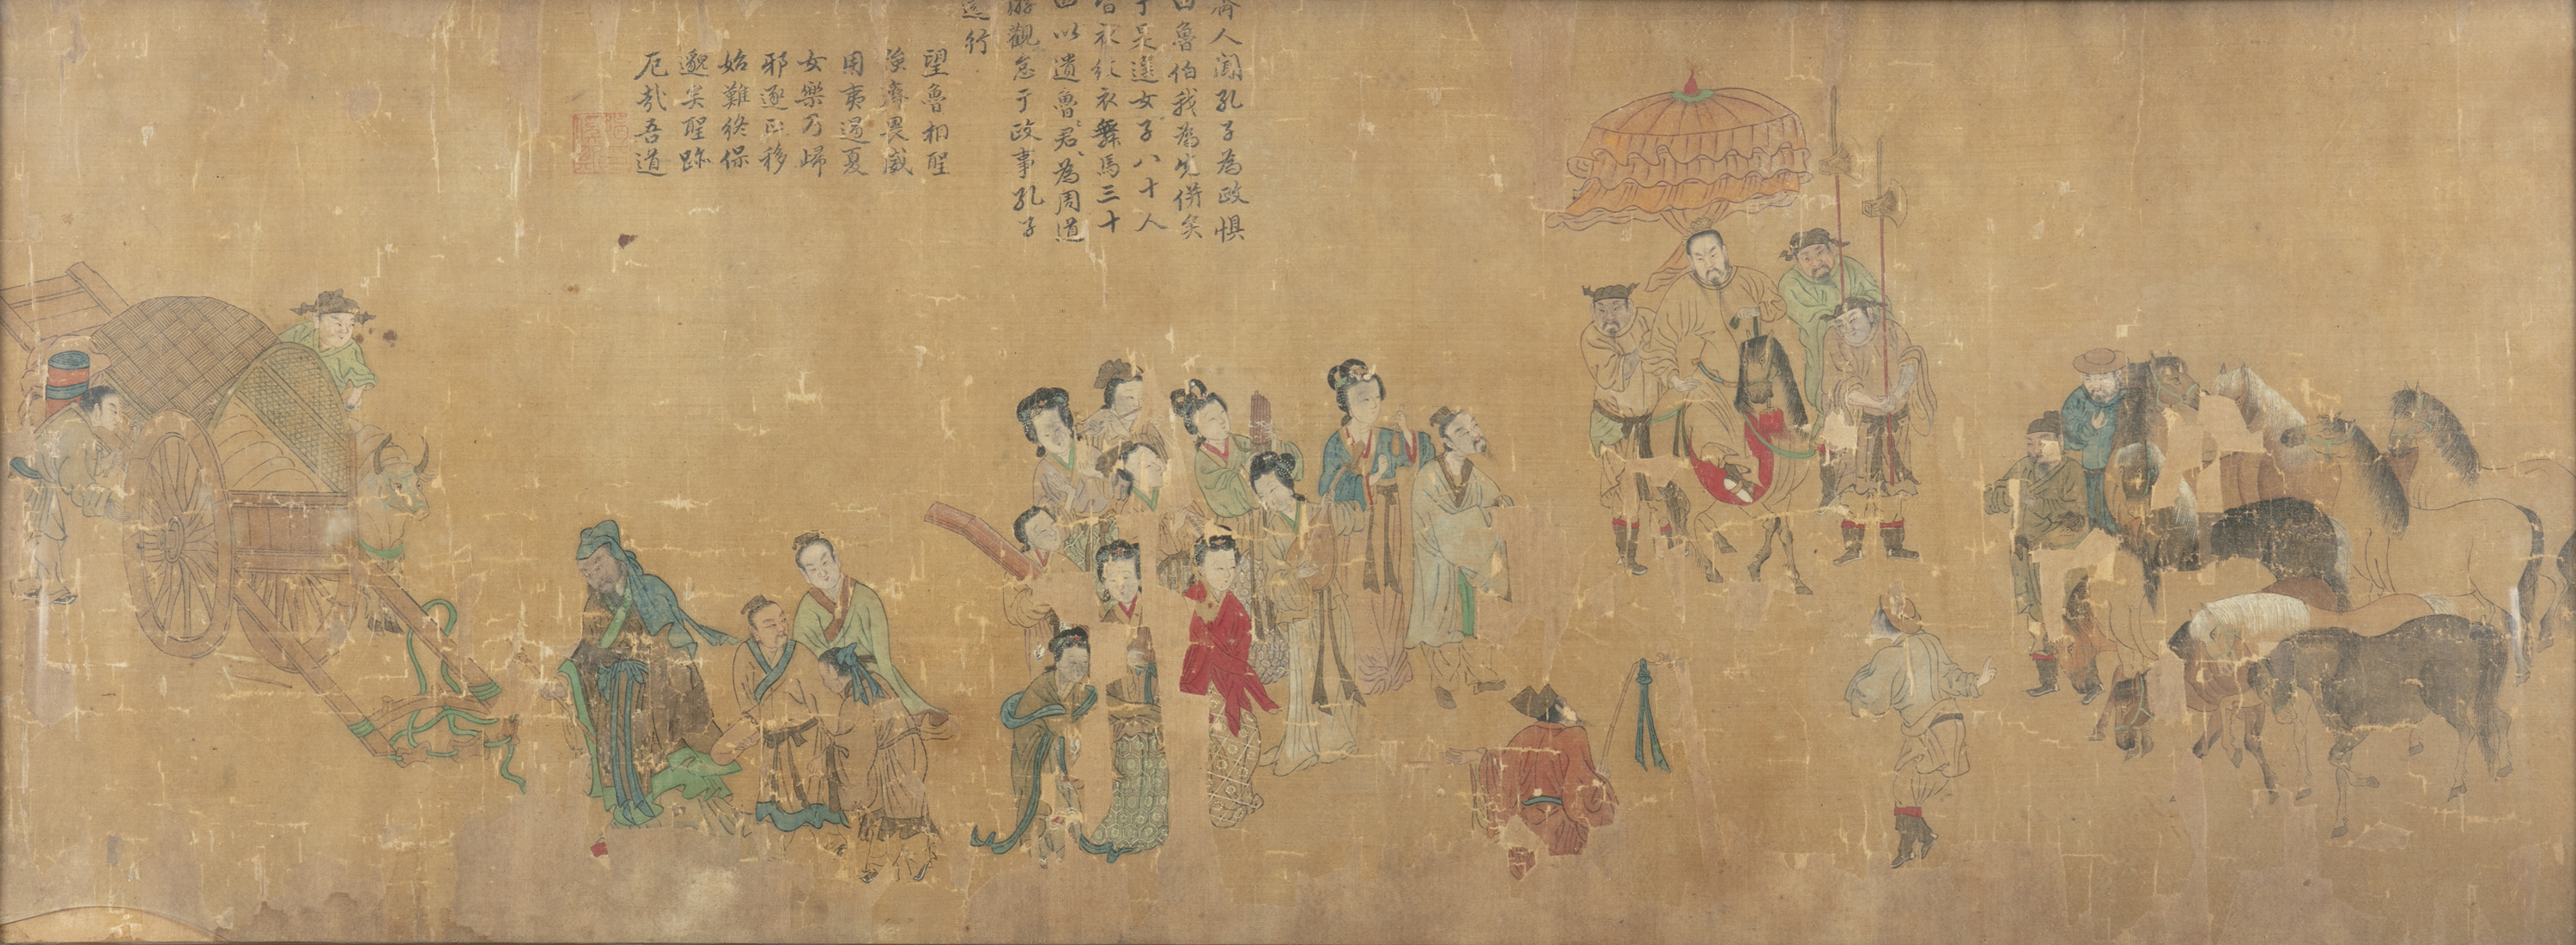 齊人聞孔子為政懼
曰魯伯我為先併矣
于是選女子八十人
皆衣紋衣舞馬三十
以遺魯君為周道
游觀怠于政事孔子
遂行
望魯相聖
強齊畏威
用夷遏夏
女樂乃歸
邪逐正移
始難終保
邈矣聖跡
厄哉吾道